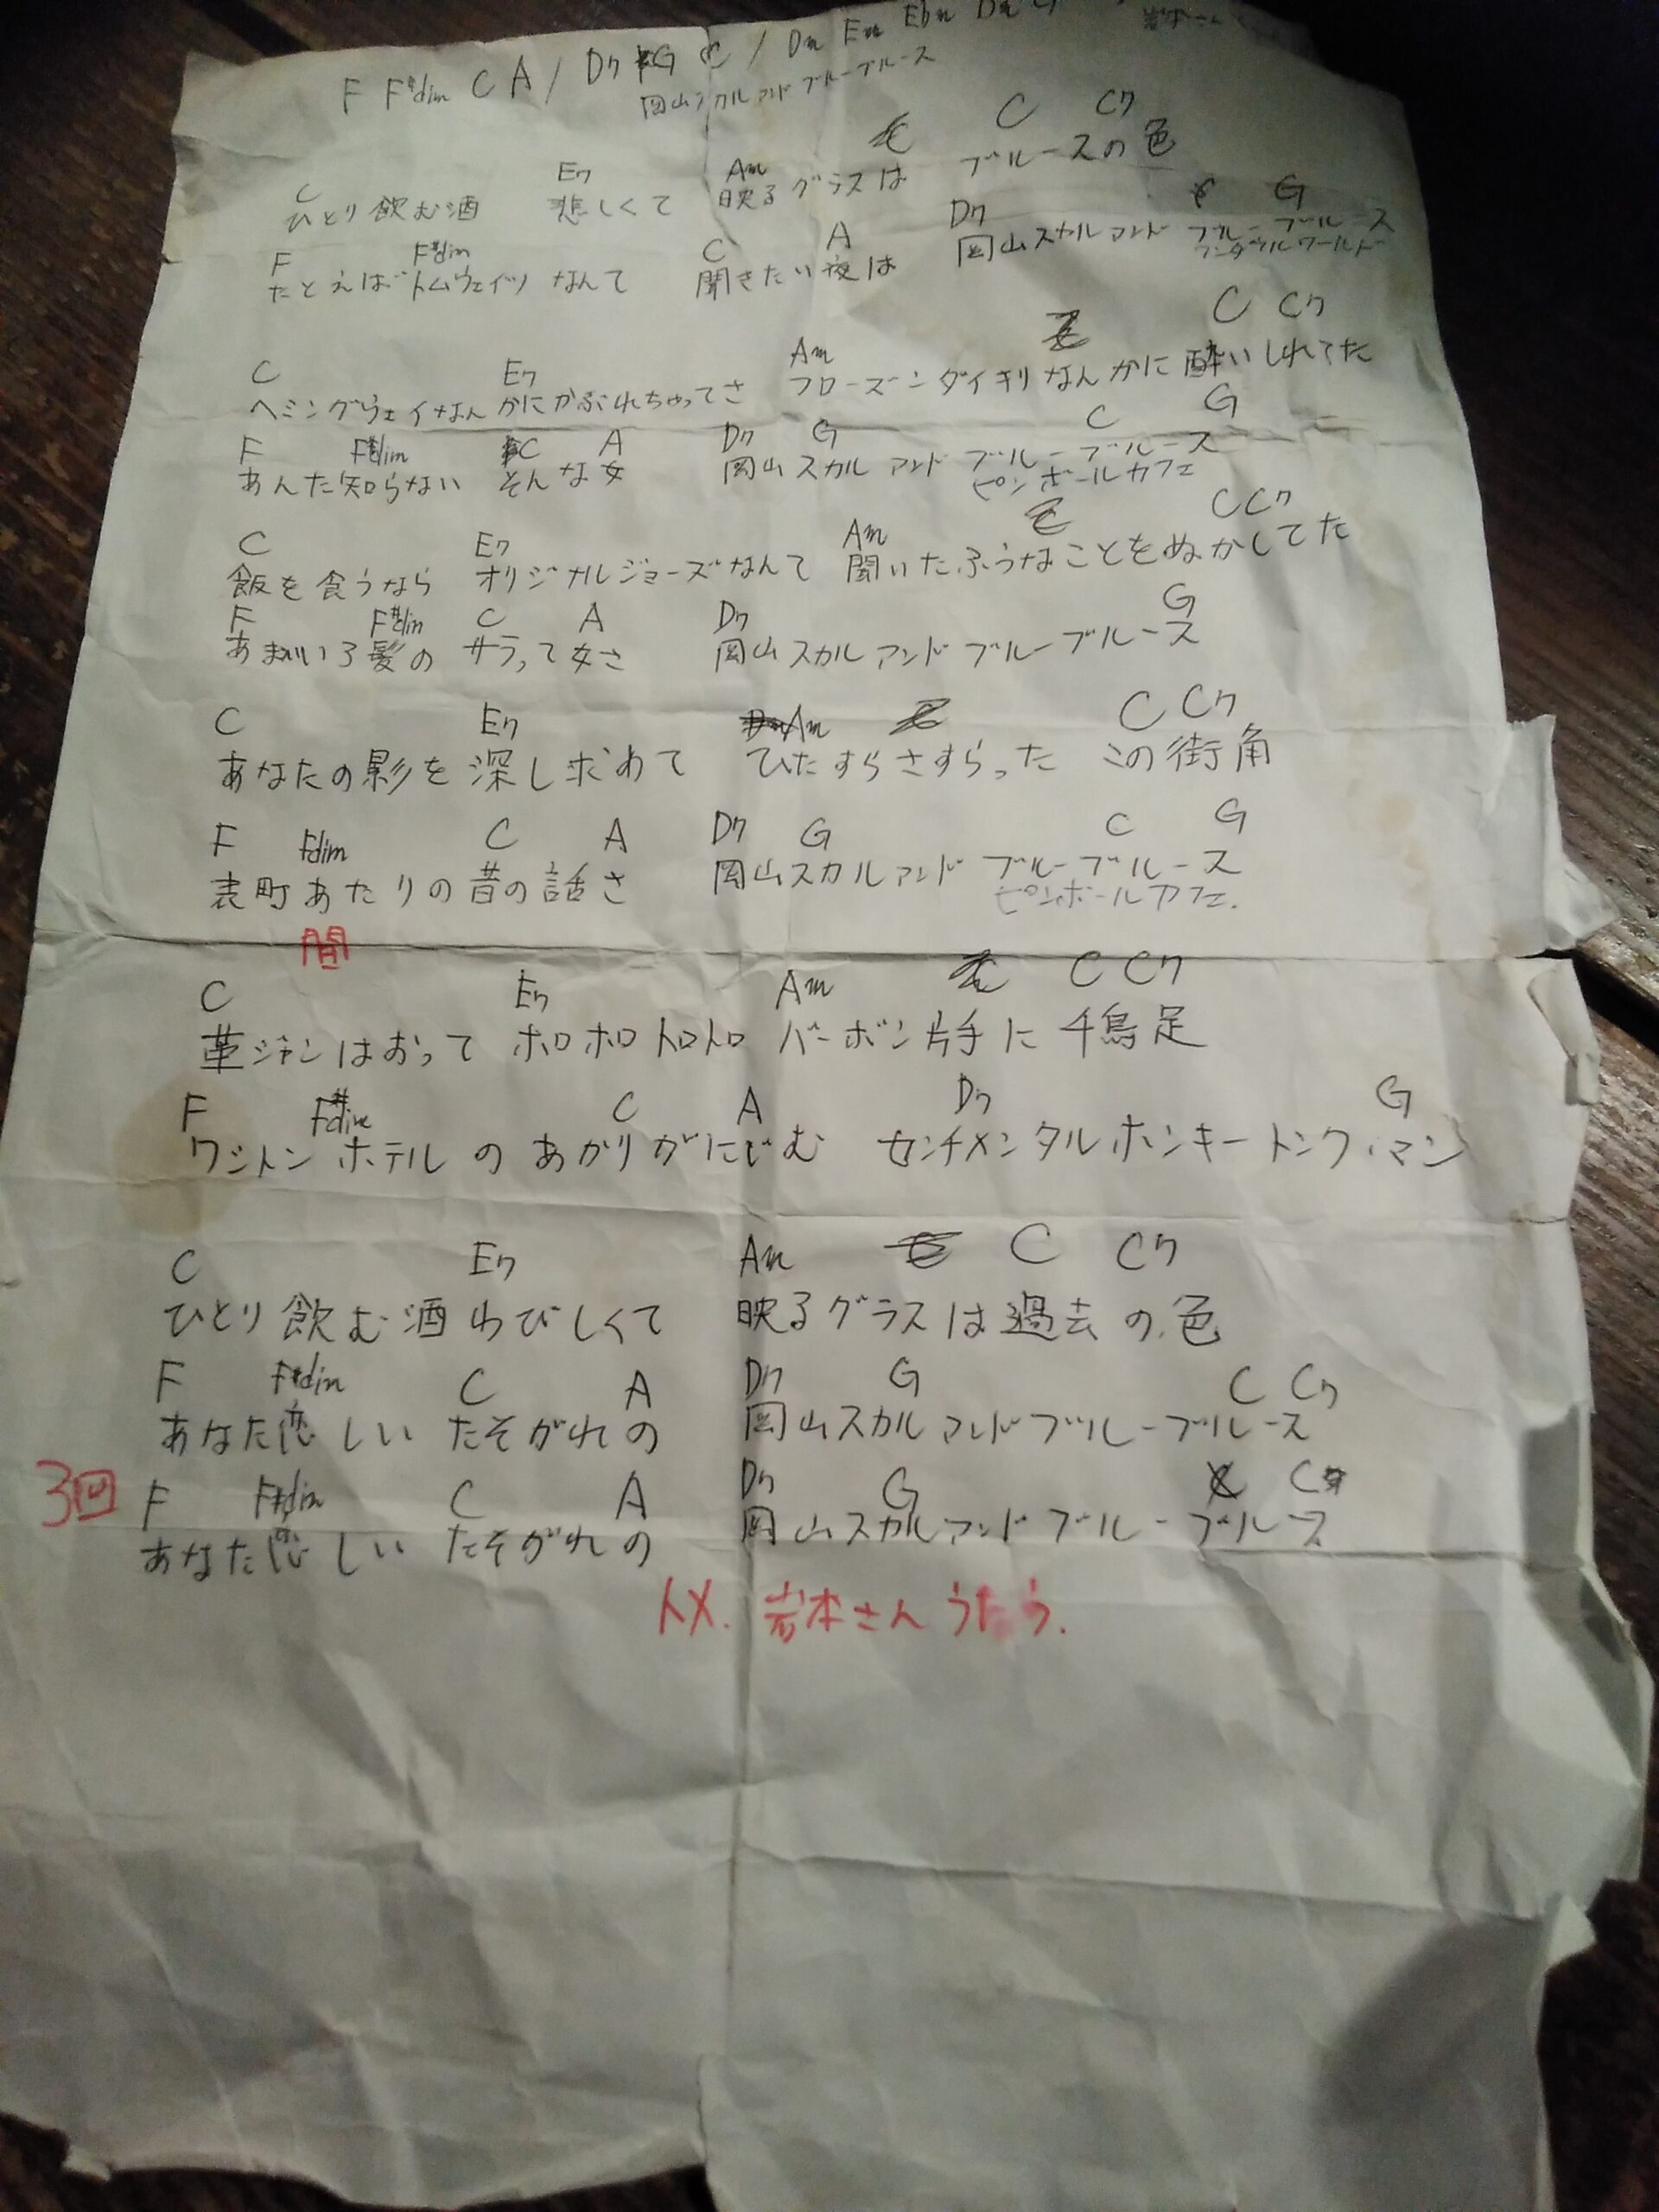 F F#dim C A / D7 G C / Dm Em Ebm Dm
岩本さん
岡山スカルアンドブルーブルース
C E7 Am C C7
ひとり飲む酒 悲しくて 映るグラスは ブルースの色
F F#dim C A D7 G
たとえばトムウェイツ なんて 聞きたい夜は 岡山スカルアンド ブルーブルース
ワンダフルワールド
C E7 Am C C7
ヘミングウェイなんかにかぶれちゃってさ フローズンダイキリなんかに酔いしれてた
F F#dim C A D7 G C G
あんた知らない そんな女 岡山スカルアンド ブルーブルース
ピンボールカフェ
C E7 Am C C7
飯を食うなら オリジナルジョーズなんて 聞いたふうなことをぬかしてた
F F#dim C A D7 G
あまいろ髪の サラって女さ 岡山スカルアンドブルーブルース
C E7 Am C C7
あなたの影を深し求めて ひたすらさすらった この街角
F Fdim C A D7 G C G
表町あたりの昔の話さ 岡山スカルアンド ブルーブルース
ピンボールカフェ.
間
C E7 Am C C7
革ジャンはおって ホロホロトロトロ バーボン片手に千鳥足
F F#dim C A D7 G
ワシトンホテルのあかりがにじむ センチメンタルホンキートンク・マン
C E7 Am C C7
ひとり飲む酒わびしくて 映るグラスは過去の色
F F#dim C A D7 G C C7
あなた恋しいたそがれの 岡山スカルアンドブルーブルース
3回 F F#dim C A D7 G C
あなた恋しいたそがれの 岡山スカルアンドブルーブルース
トメ. 岩本さんうたう.